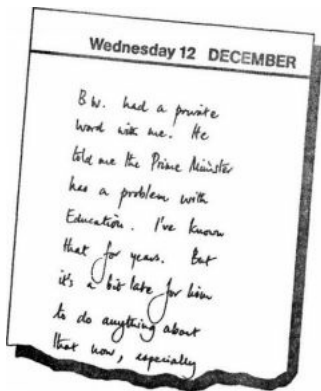 Wednesday 12 DECEMBER
B.W. had a private
word with me. He
told me the Prime Minister
has a problem with
Education. I've known
that for years. But
it's a bit late for him
to do anything about
that now, especially